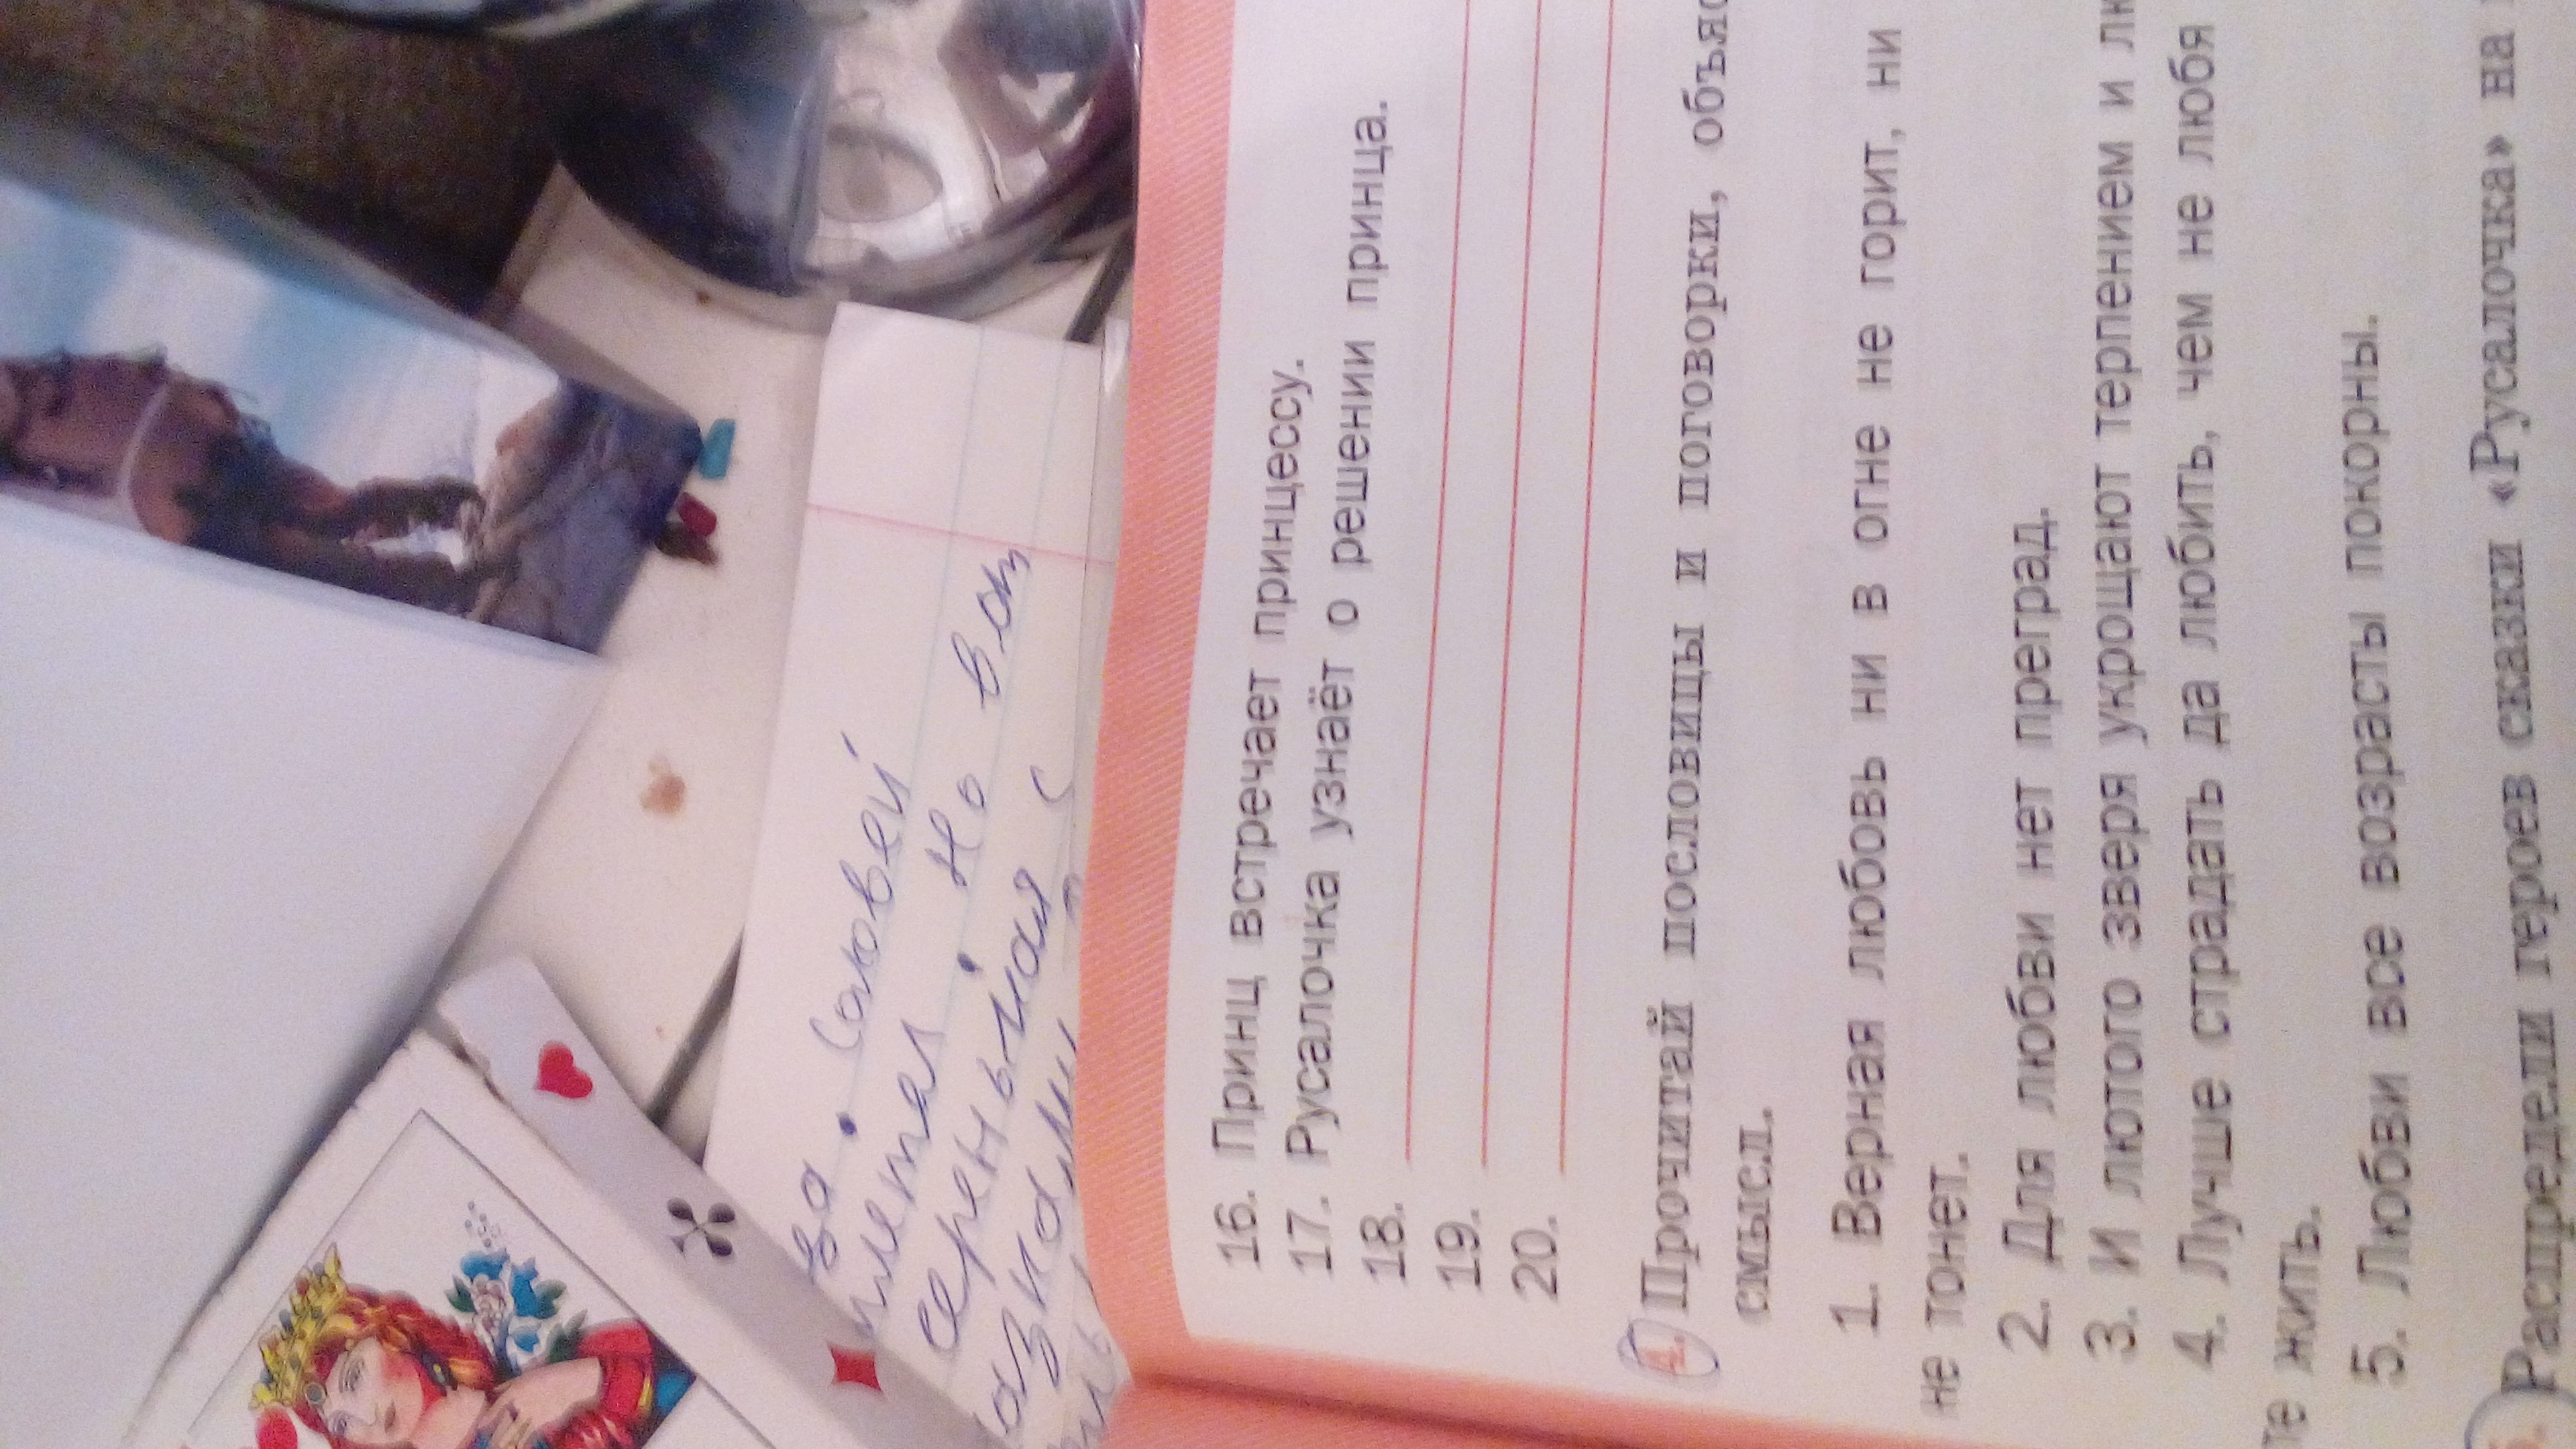 16. Принц встречает принцессу.
17. Русалочка узнаёт о решении принца.
18.
19.
20.
4. Прочитай пословицы и поговорки, объяс
смысл.
1. Верная любовь ни в огне не горит, ни
не тонет.
2. Для любви нет преград.
3. И лютого зверя укрощают терпением и лю
4. Лучше страдать да любить, чем не любя
те жить.
5. Любви все возрасты покорны.
Распредели героев сказки «Русалочка» на
за. Соловей
Но вот
серенькая с